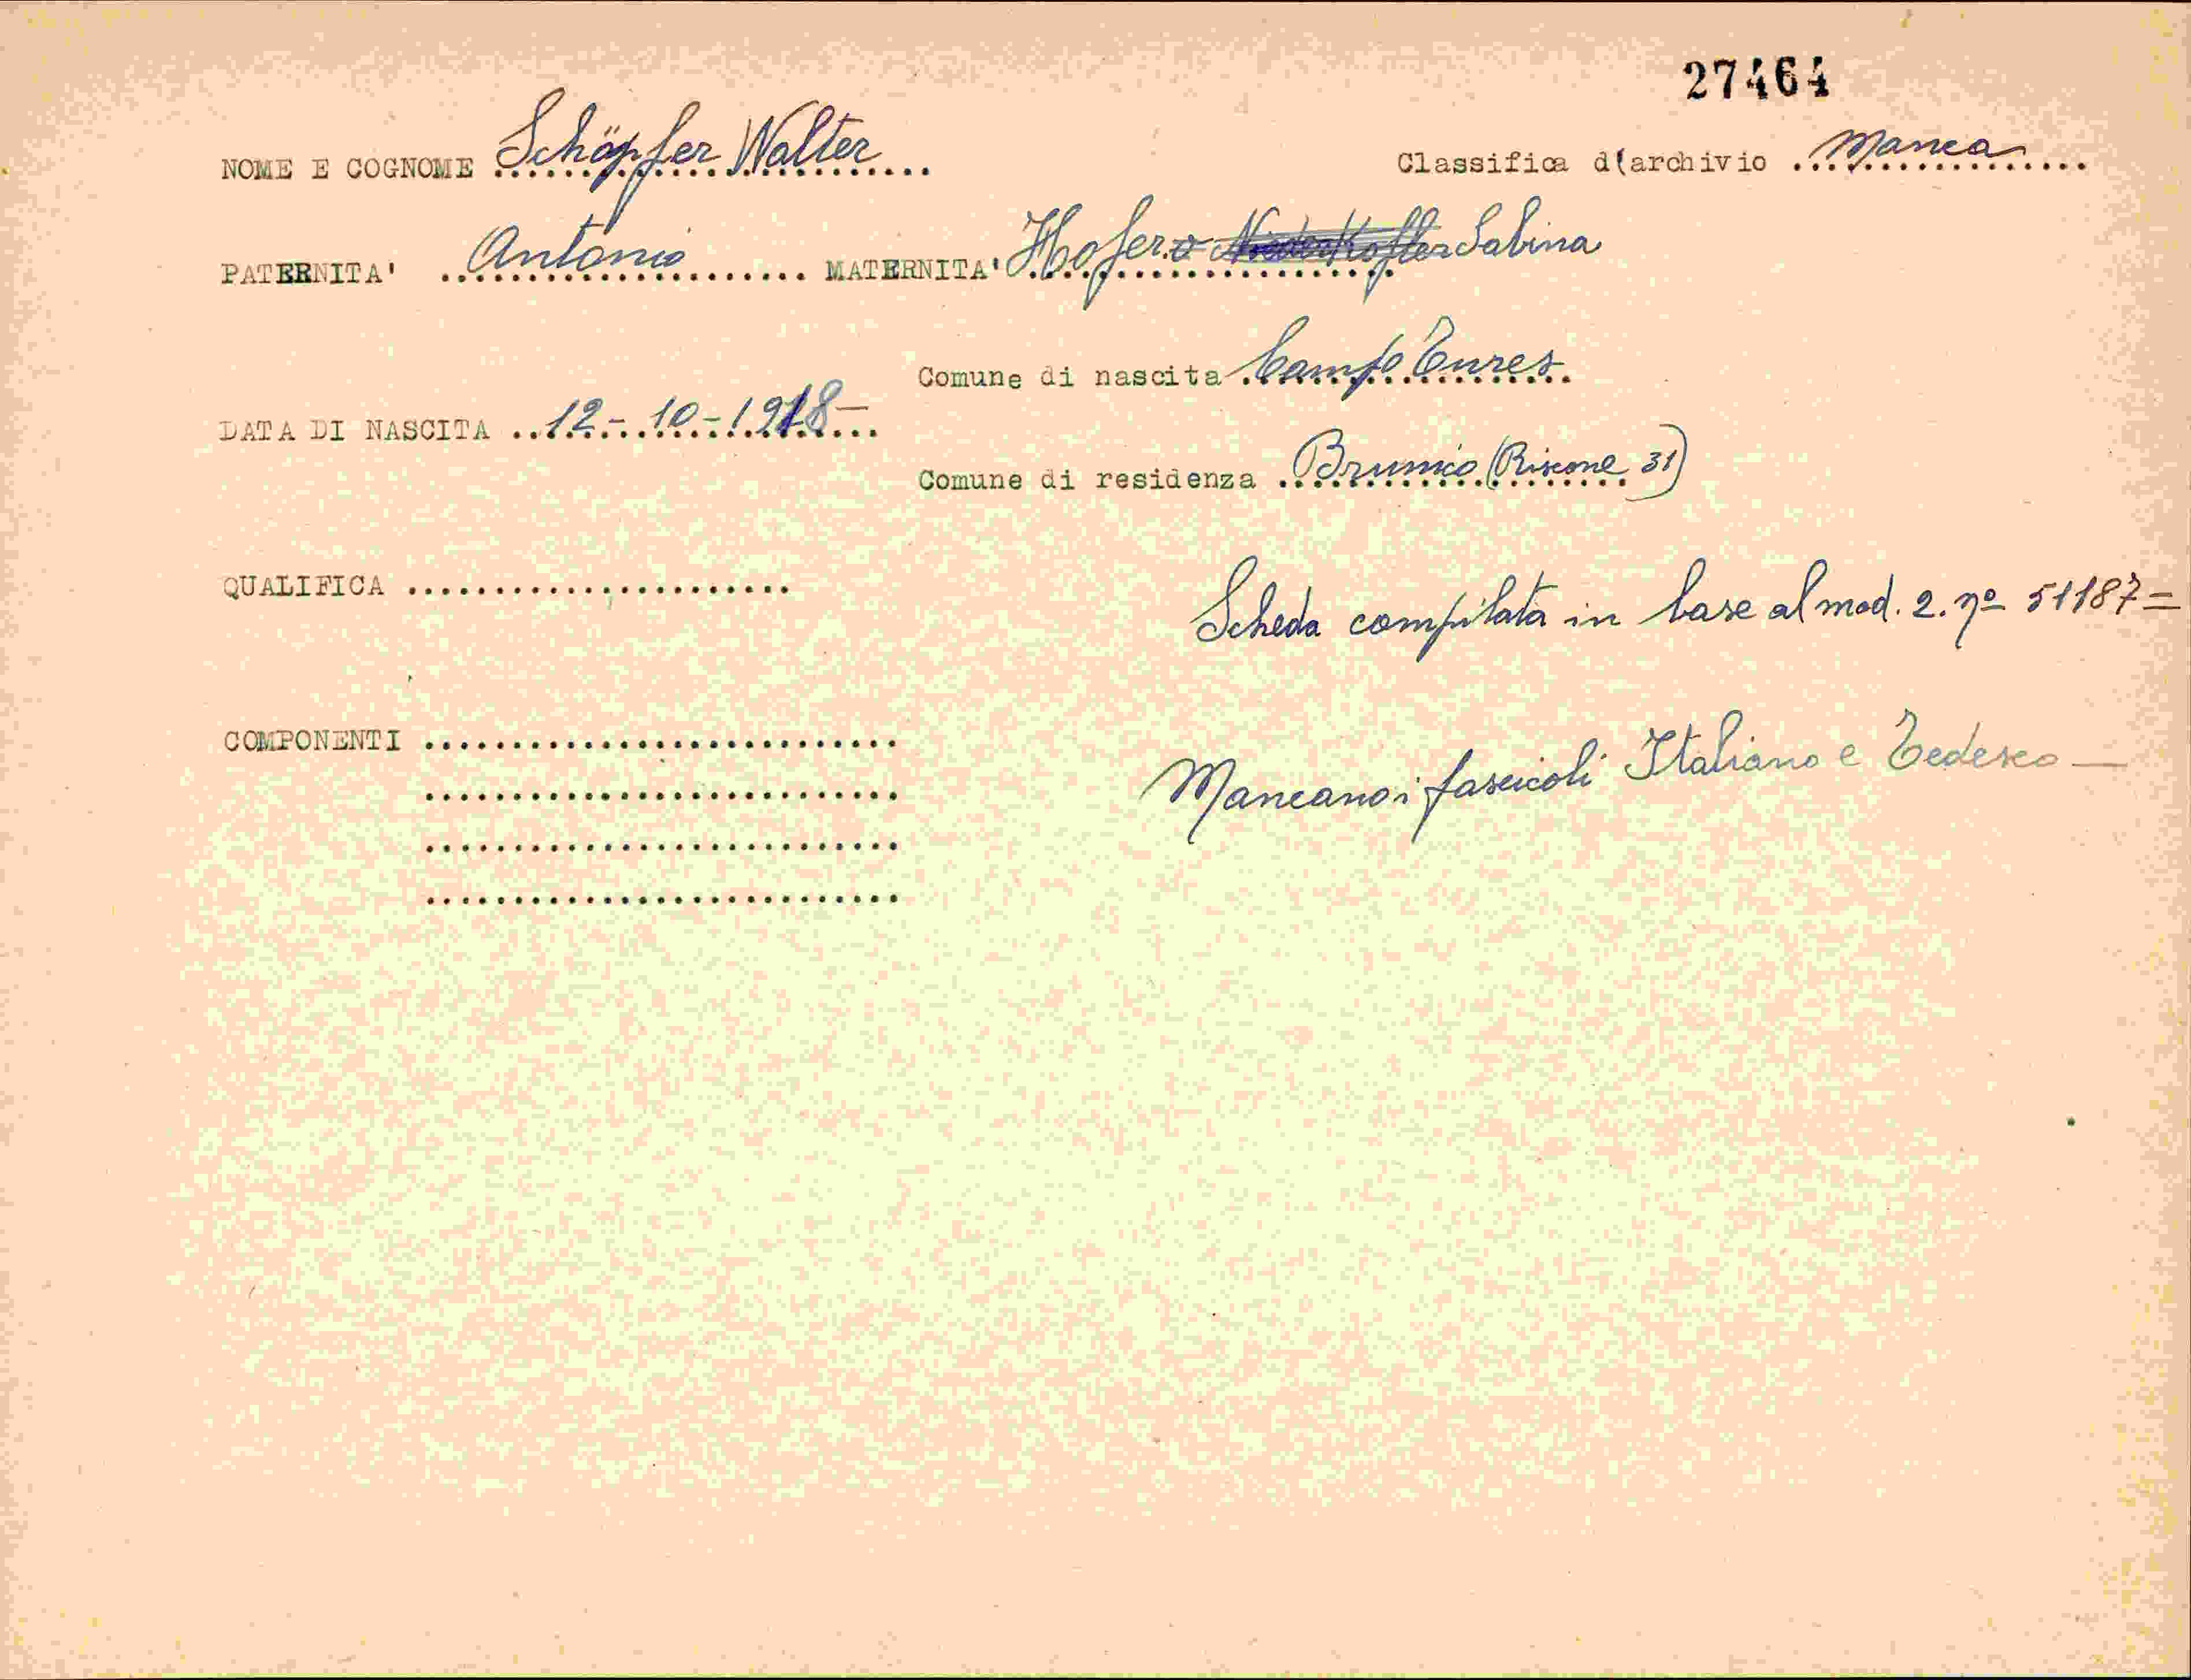 27464
NOME E COGNOME Schöpfer Walter
Classifica d(archivio Manca
PATERNITA' Antonio MATERNITA' Hofer o Niederkofler Sabina
Comune di nascita Campo Tures
DATA DI NASCITA 12-10-1918-
Comune di residenza Brunico (Riscone 31)
QUALIFICA
Scheda compilata in base al mod. 2. nº 51187=
COMPONENTI
Mancano i fascicoli Italiano e Tedesco —